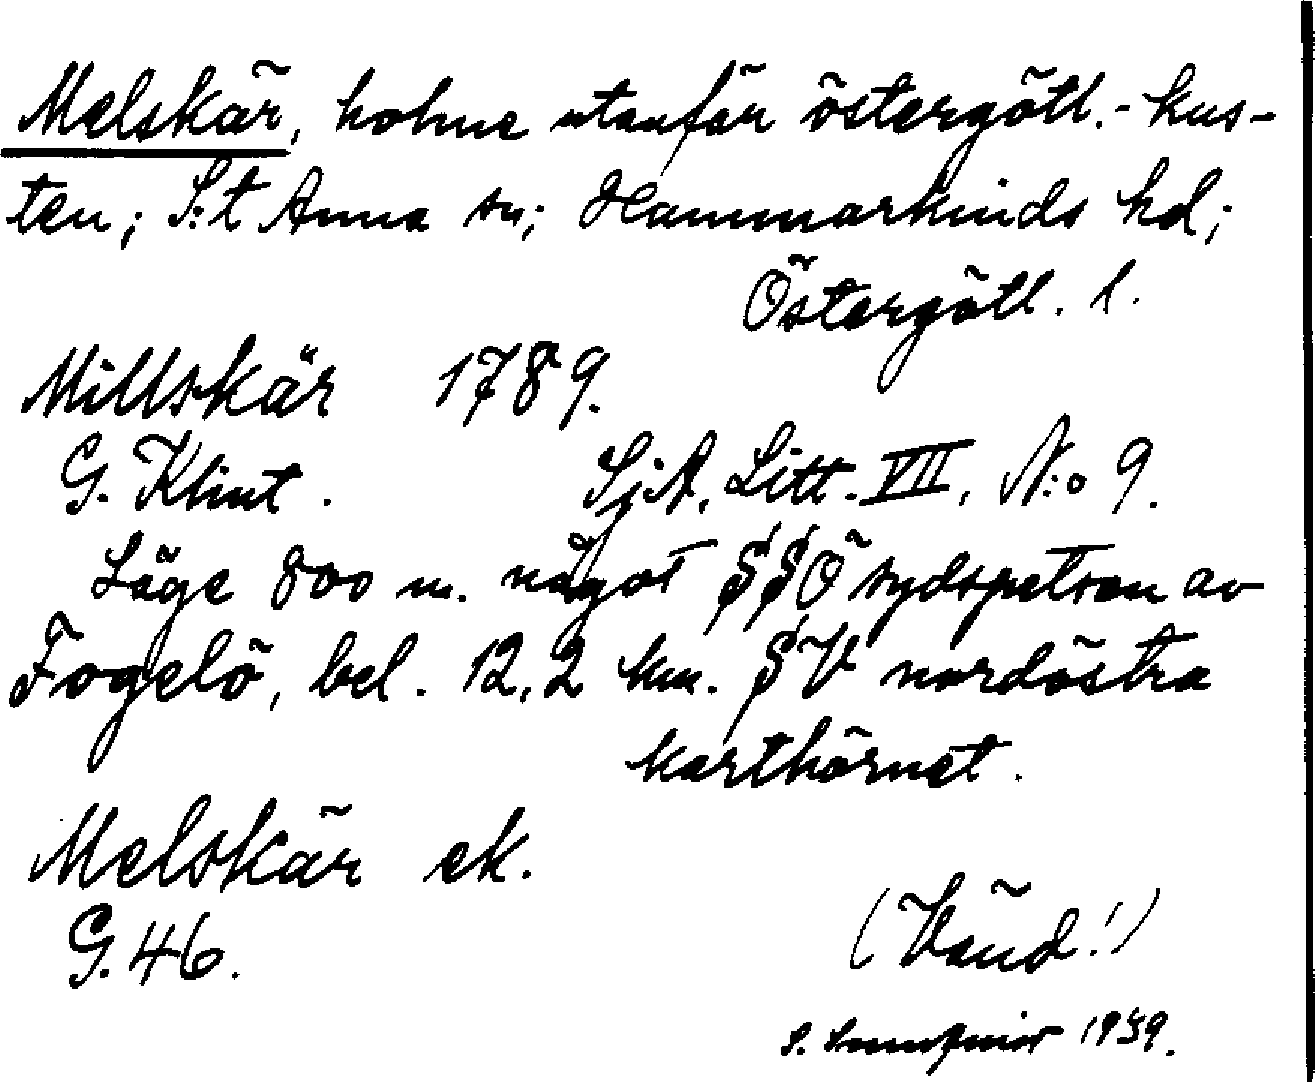 Melskär, holme utanför östergötl.-kus-
ten; S:t Anna sn; Hammarkinds hd;
Östergötl. l.
Millskär 1789.
G. Klint. SjA, Litt. VII, N:o 9.
Läge 800 m. något SSÖ sydspetsen av
Fogelö, bel. 12,2 km. SV nordöstra
karthörnet.
Melskär ek.
G. 46.
(Vänd!)
S. 1939.